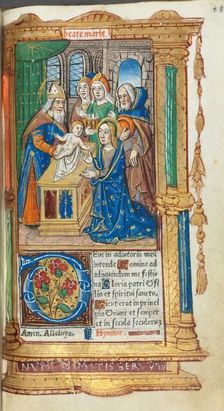 beate marie
Eus in adiutoriū meū
intende Domine ad
adiuuandum me festi
na Gloria patri Et fi
lio et spiritui sancto.
Sicut erat in
principio Et nunc et semper
et in secula seculorum
Amen. Alleluya. Hymnus
NVNC DIMITIS SERVVM